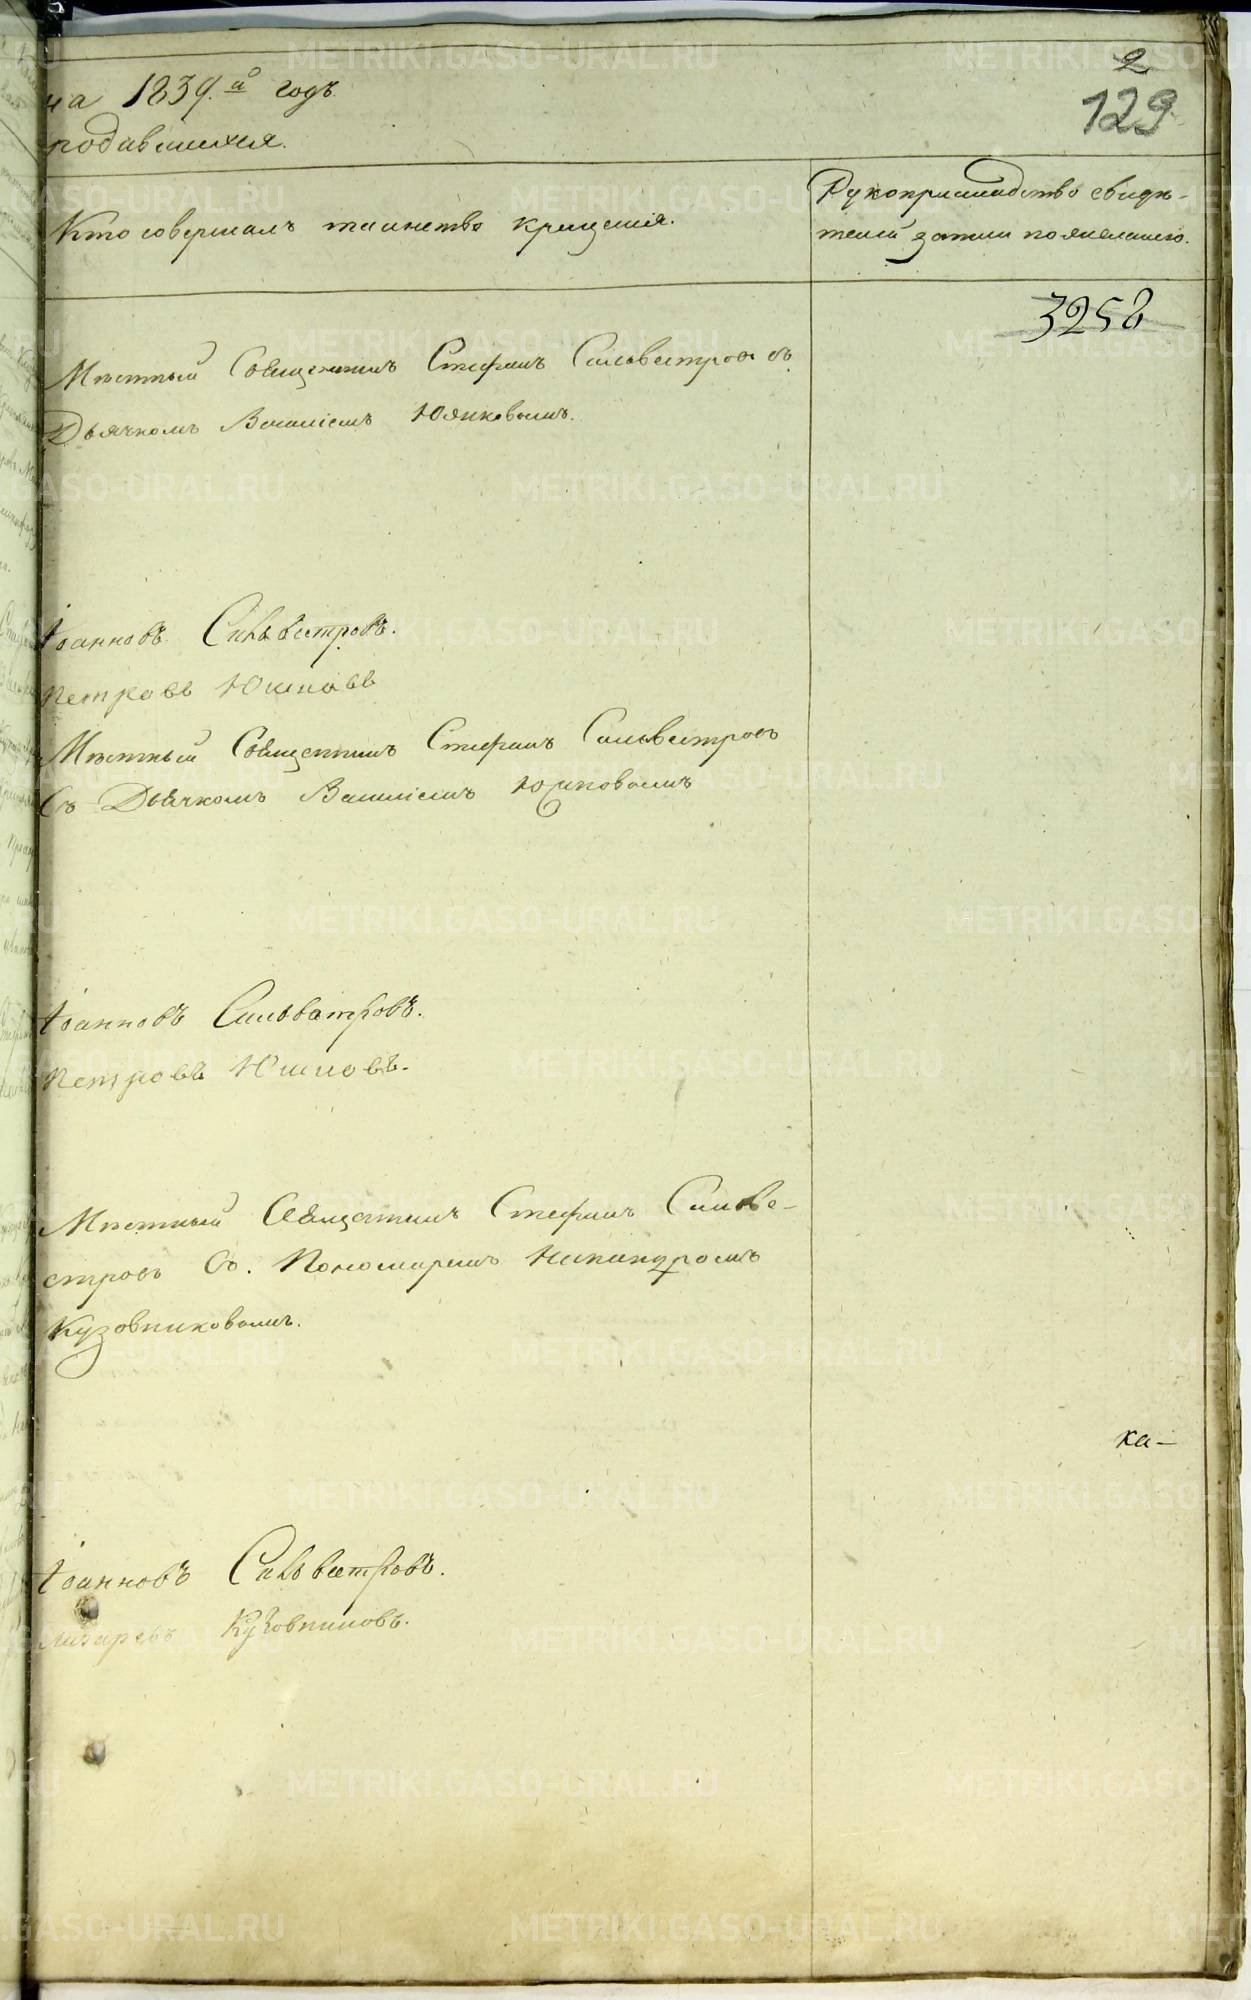 на 1839.й годъ
2
129
родившихся.
Кто совершалъ таинство крещенія.
Рукоприкладство свидѣ-
телей записи по желанію.
3258
Мѣстный Священникъ Стефанъ Сильвестровъ съ
Дьячкомъ Василіемъ Юшковымъ.
Іоанновъ Сильвестровъ.
Петровъ Юшковъ
Мѣстный Священникъ Стефанъ Сильвестровъ
Съ Дьячкомъ Василіемъ Юшковымъ
Іоанновъ Сильвестровъ.
Петровъ Юшковъ.
Мѣстный Священникъ Стефанъ Сильве-
стровъ Съ. Пономаремъ Никандромъ
Кузовниковымъ.
ка-
Іоанновъ Сильвестровъ.
Лазаревъ Кузовниковъ.
METRIKI.GASO-URAL.RU